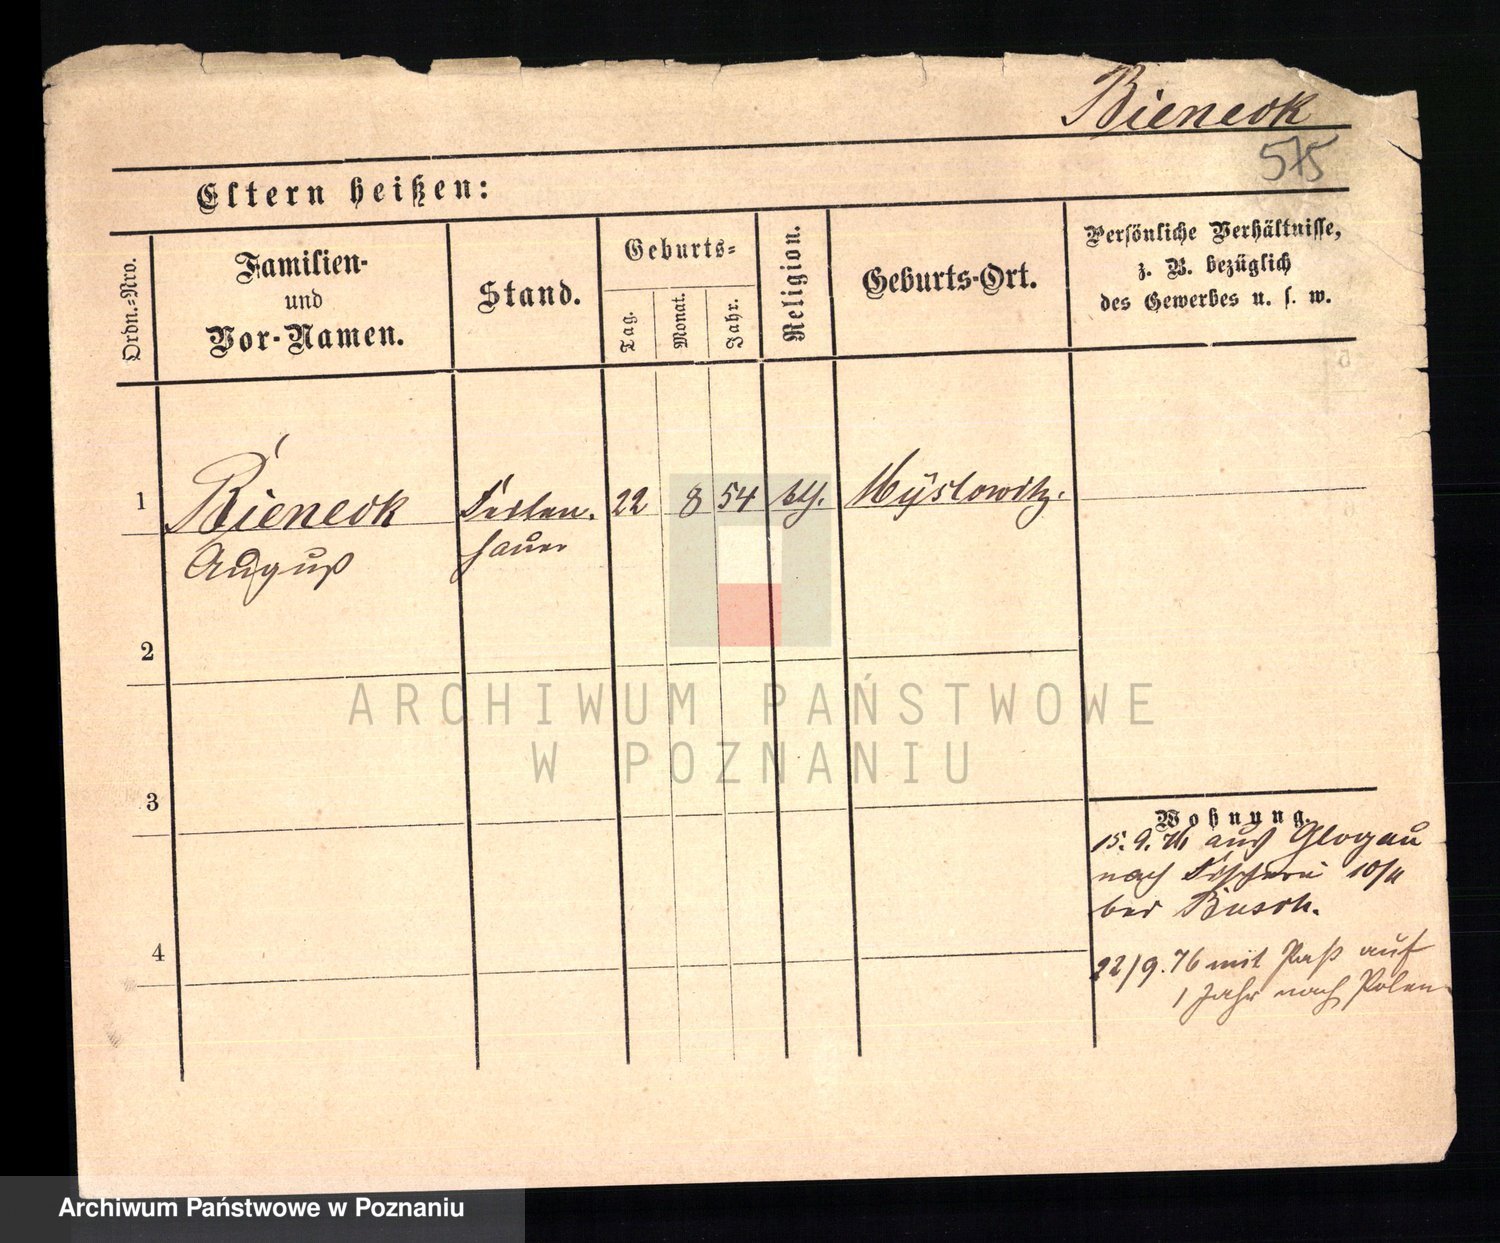 Bieneck
575
Eltern heißen:
Ordn.-Nro.
Familien-
und
Vor-Namen.
Stand.
Geburts-
Tag.
Monat.
Jahr.
Religion.
Geburts-Ort.
Persönliche Verhältnisse,
z. B. bezüglich
des Gewerbes u. s. w.
1
Bieneck
August
Feilen-
hauer
22
8
54
kth.
Myslowitz.
2
3
4
Wohnung.
15. 9. 76 aus Glogau
nach Fischerei 10/11
bei Busch.
22/9. 76 mit Paß auf
1 Jahr nach Polen
ARCHIWUM PAŃSTWOWE
W POZNANIU
Archiwum Państwowe w Poznaniu